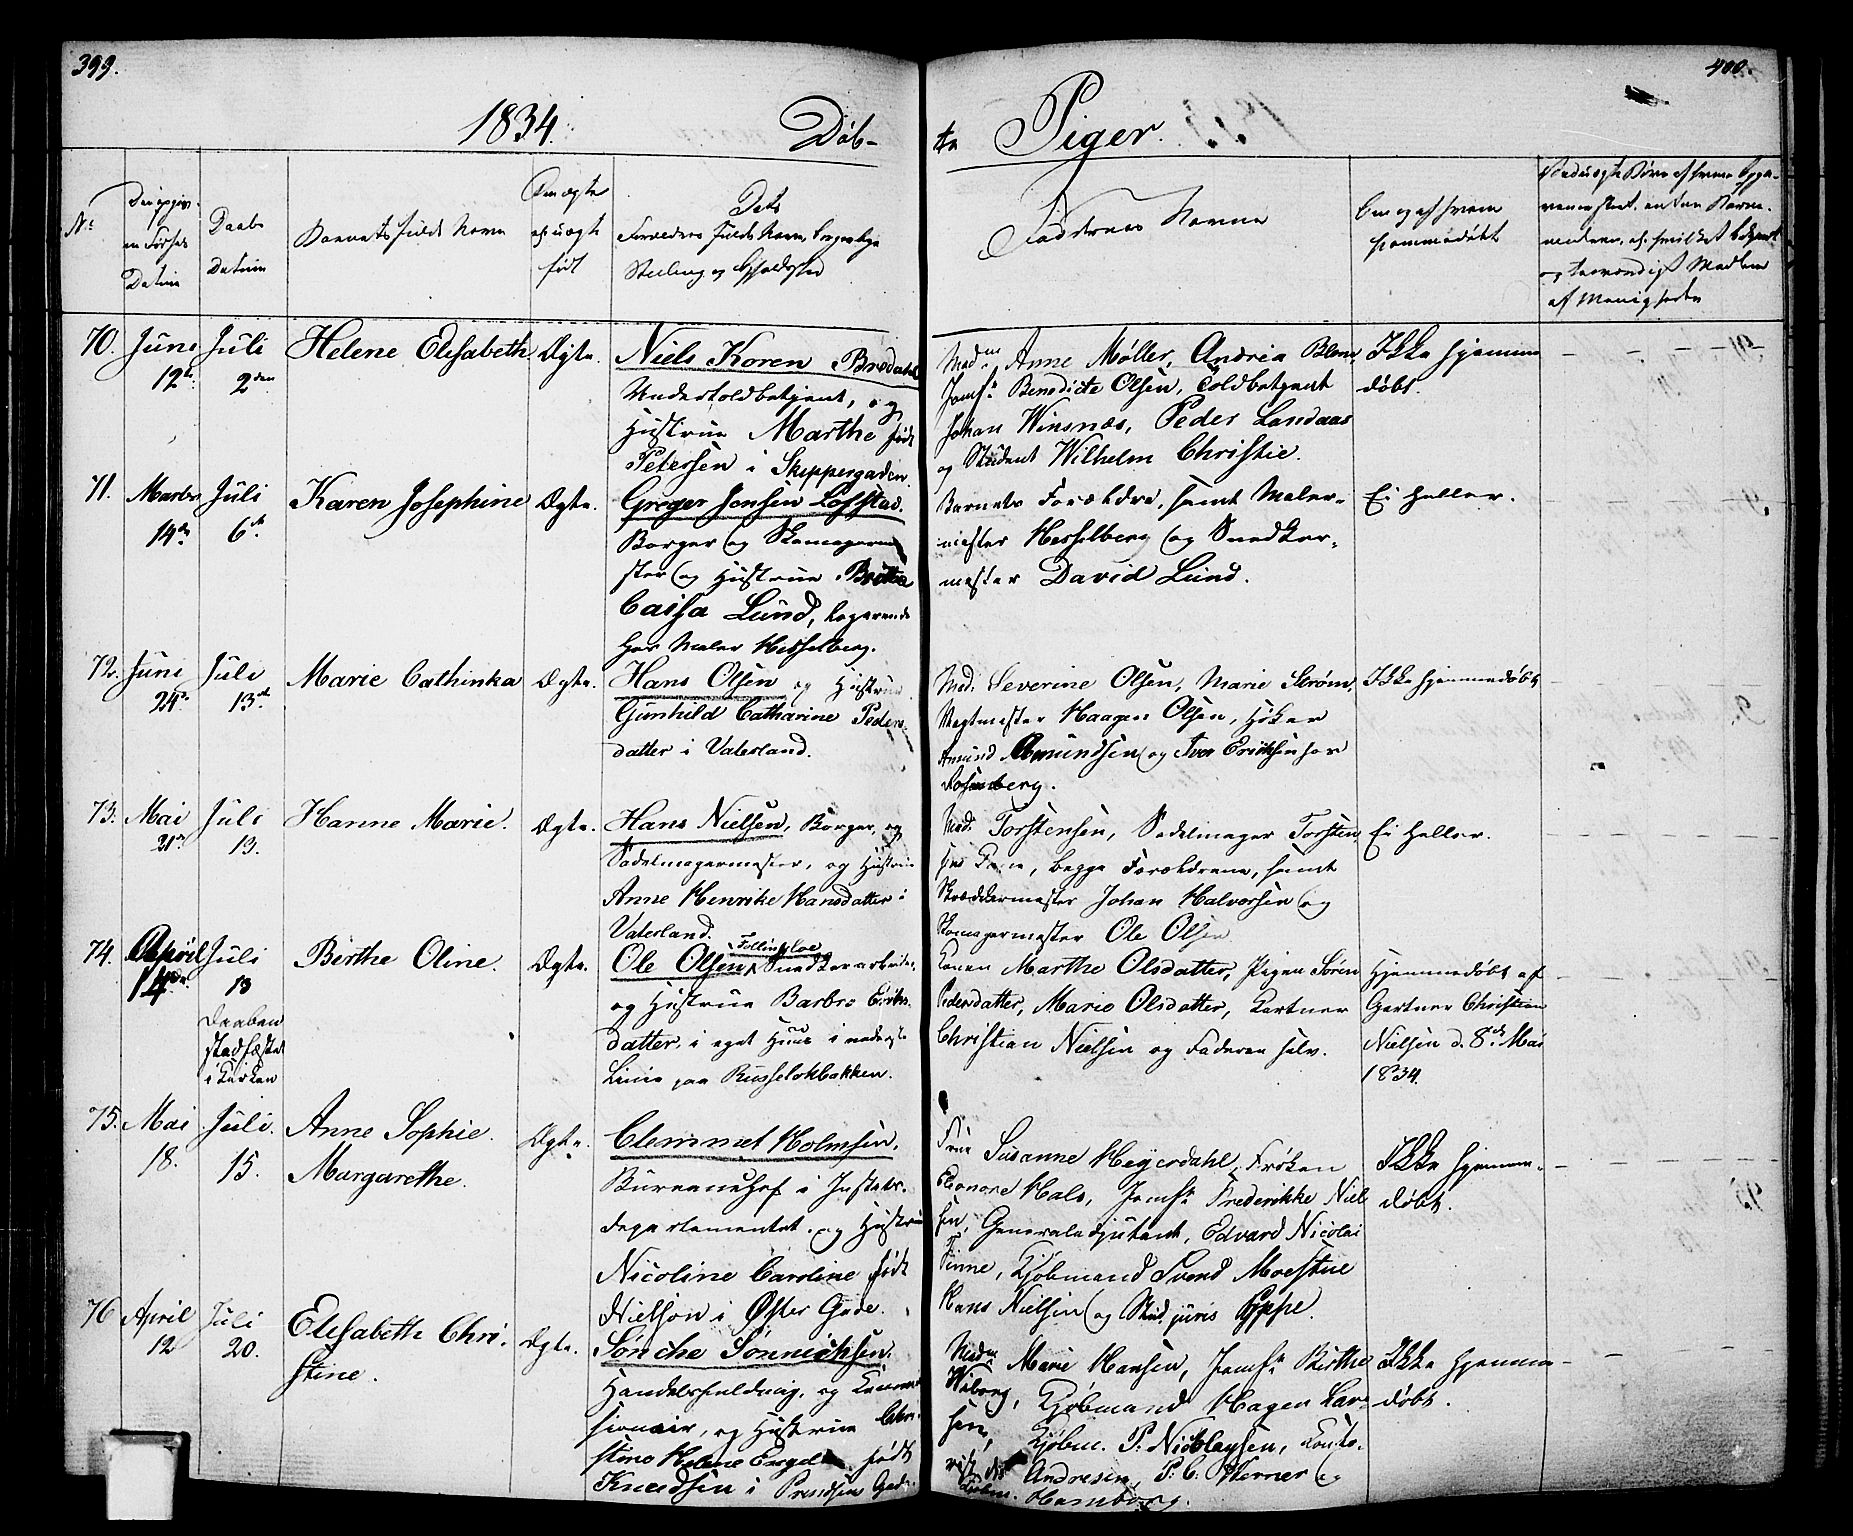 399.
400.
1834.
Døb-
te Piger.
No
Den opgivne Fødsels Datum
Daabs Datum
Barnets fulde Navn
Om ægte eller uægte født
Dets Forældres fulde Navn, borgerlige Stilling og Opholdssted
Faddernes Navne
Om og af hvem hjemmedøbt
70. Juni 12te Juli 2den Helene Elisabeth Ægte.
Niels Koren Bredahl
Undertoldbetjent, og
Hustrue Marthe født
Petersen i Skippergaden.
Madm Anne Møller, Andrea Blom,
Jomfr Benedicte Olsen, Toldbetjent
Johan Winsnæs, Peder Landaas
og Student Wilhelm Christie.
Ikke hjemme
døbt.
71. Marts 14de Juli 6te Karen Josephine Ægte.
Greger Jensen Lofstad.
Borger og Skomagerme
ster og Hustrue
Caisa Lund, logerende
hos Maler Hesselberg.
Barnets Forældre, samt Maler-
mester Hesselberg og Snedker-
mester David Lund.
Ei heller.
72. Juni 24de Juli 13de Marie Cathinka Ægte.
Hans Olsen og Hustrue
Gunhild Catharine Peders
datter i Vaterland.
Mad. Severine Olsen, Marie Strøm,
Vegtmester Haagen Olsen, Høker
Amund Amundsen og Iver Eriksen hos
Rosenberg.
Ikke hjemmedøbt
73. Mai 21de Juli 13. Hanne Marie. Ægte.
Hans Nielsen, Borger, og
Sadelmagermester, og Hustrue
Anne Henrike Hansdatter i
Vaterland.
Mad. Torstensen, Sadelmager Torsten
sens Kone, begge Forældrene, samt
Skræddermester Johan Halvorsen og
Skomagermester Ole Olsen
Ei heller.
74. April 14de Juli 13
Daaben
stadfæstet
i Kirken
Berthe Oline. Ægte.
Ole Olsen Snedkerarbeider,
og Hustrue Barbro Eriks
datter, i eget Huus i nederste
Linie paa Russeløkbakken.
Konen Marthe Olsdatter, Pigen Søren
Pedersdatter, Marie Olsdatter, Gartner
Christian Nielsen og Faderen selv.
Hjemmedøbt af
Gartner Christian
Nielsen d. 8de Mai
1834.
75. Mai 18. Juli. 15. Anne Sophie.
Margarethe.
Ægte.
Clemmet Holmsen,
Bureauchef i Justits-
departementet, og Hustrue
Nicoline Caroline født
Nielson i Øster Gade.
Frue Susanne Heyerdahl, Frøken
Eleonore Hals, Jomfr Frederikke Niel
sen, Generaladjutant, Edvard Nicolai
Tinne, Kjøbmand Svend Moestue
Hans Nielsen og Stud juris
Ikke hjemme-
døbt.
76 April 12 Juli 20. Elisabeth Chri-
stine.
Ægte.
Søncke Sønnichsen.
Handelsfuldmæg, og Commis
sionair, og Hustrue Chri-
stine Helene født
Knudsen i Prindsens Gade.
Madm Marie Hansen, Jomfr Birthe
Wiborg, Kjøbmand Hagen Lar-
sen, Kjøbm. P. Nicolaysen, Conto-
rist Andresen, P. C. Werner og
Kjøbm. Hamborg.
Ikke hjemme
døbt.